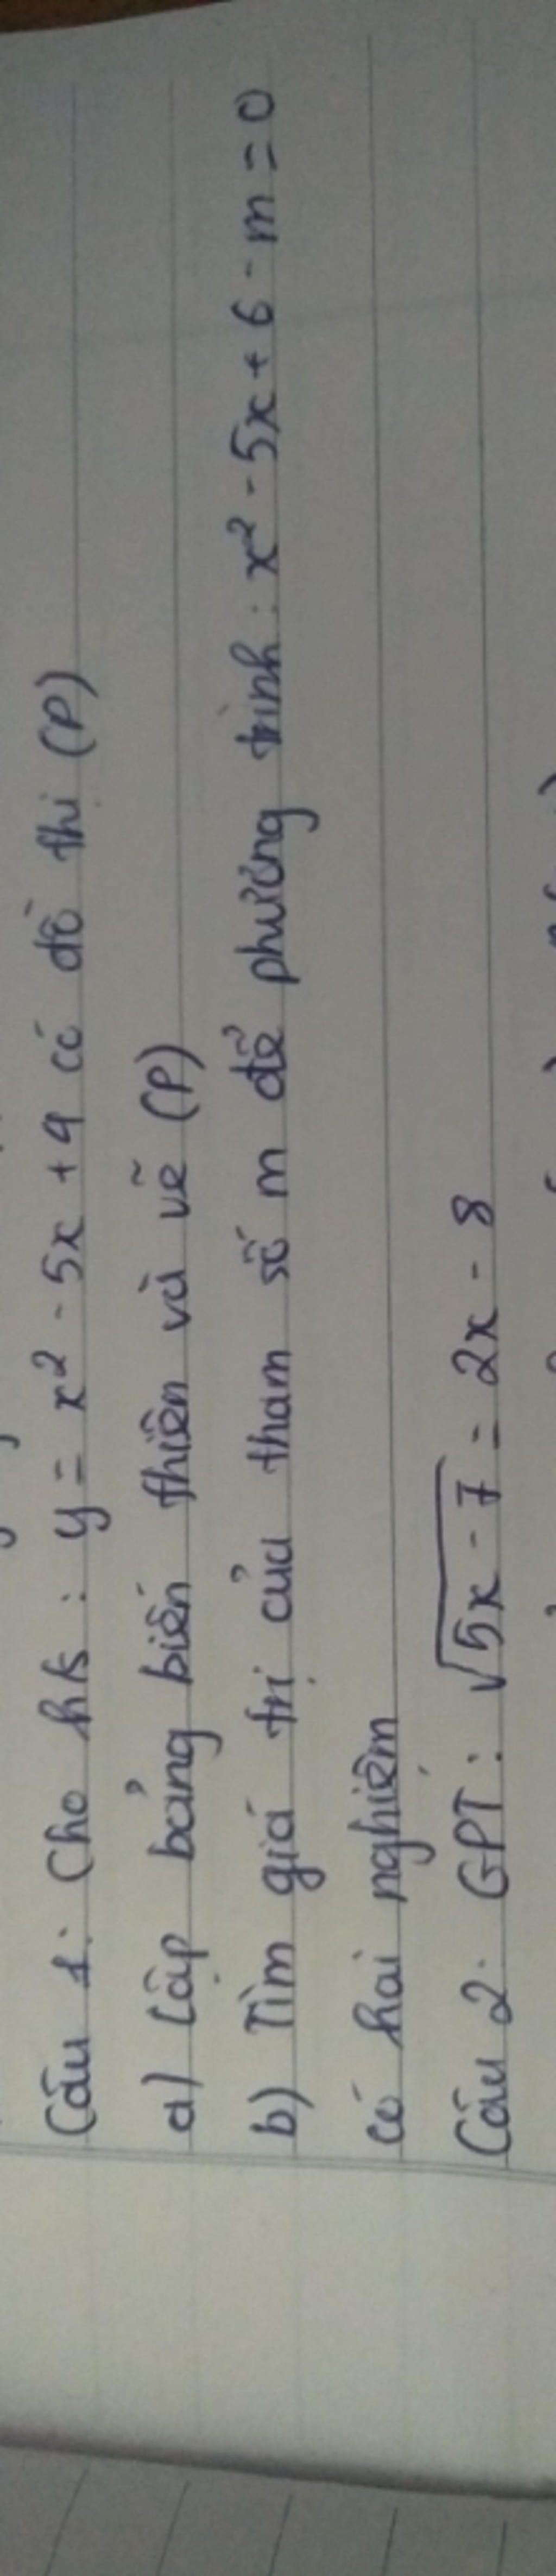 Câu 1: Cho hs : y = x² - 5x + 4 có đồ thị (P)
a) Lập bảng biến thiên và vẽ (P)
b) Tìm giá trị của tham số m để phương trình : x² - 5x + 6 - m = 0
có hai nghiệm
Câu 2: GPT : √(5x - 7) = 2x - 8